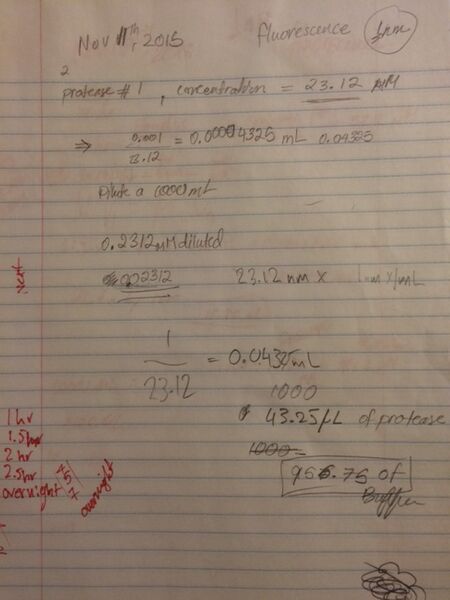 Nov 11th, 2015 fluorescence 1nm
2
protease #1, concentration = 23.12 µM
⇒ 0.001 / 23.12 = 0.00004325 mL 0.04325
Dilute a 1000 mL
0.2312 µM diluted
0.02312 23.12 nm x 1 nm x 1 mL
Next
1 / 23.12 = 0.04325 mL
1000
43.25 µL of protease
1000
956.75 of
Buffer
1 hr
1.5 hr
2 hr
2.5 hr
overnight
overnight